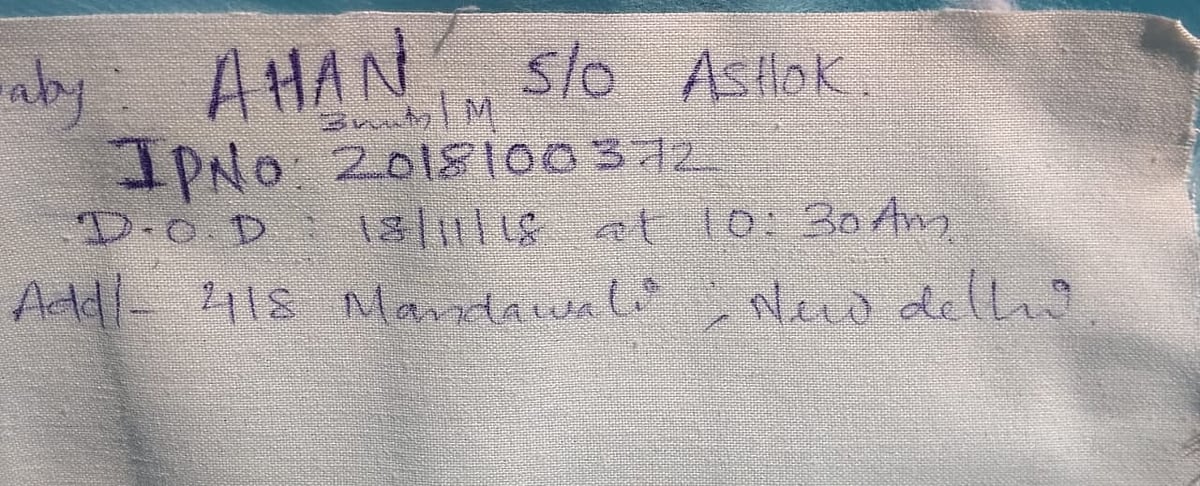 aby: AHAN S/O ASHOK.
3mnths/M
IPNO: 2018100372
D.O.D : 18/11/18 at 10:30 Am
Add/- 418 Mandawali, New delhi.